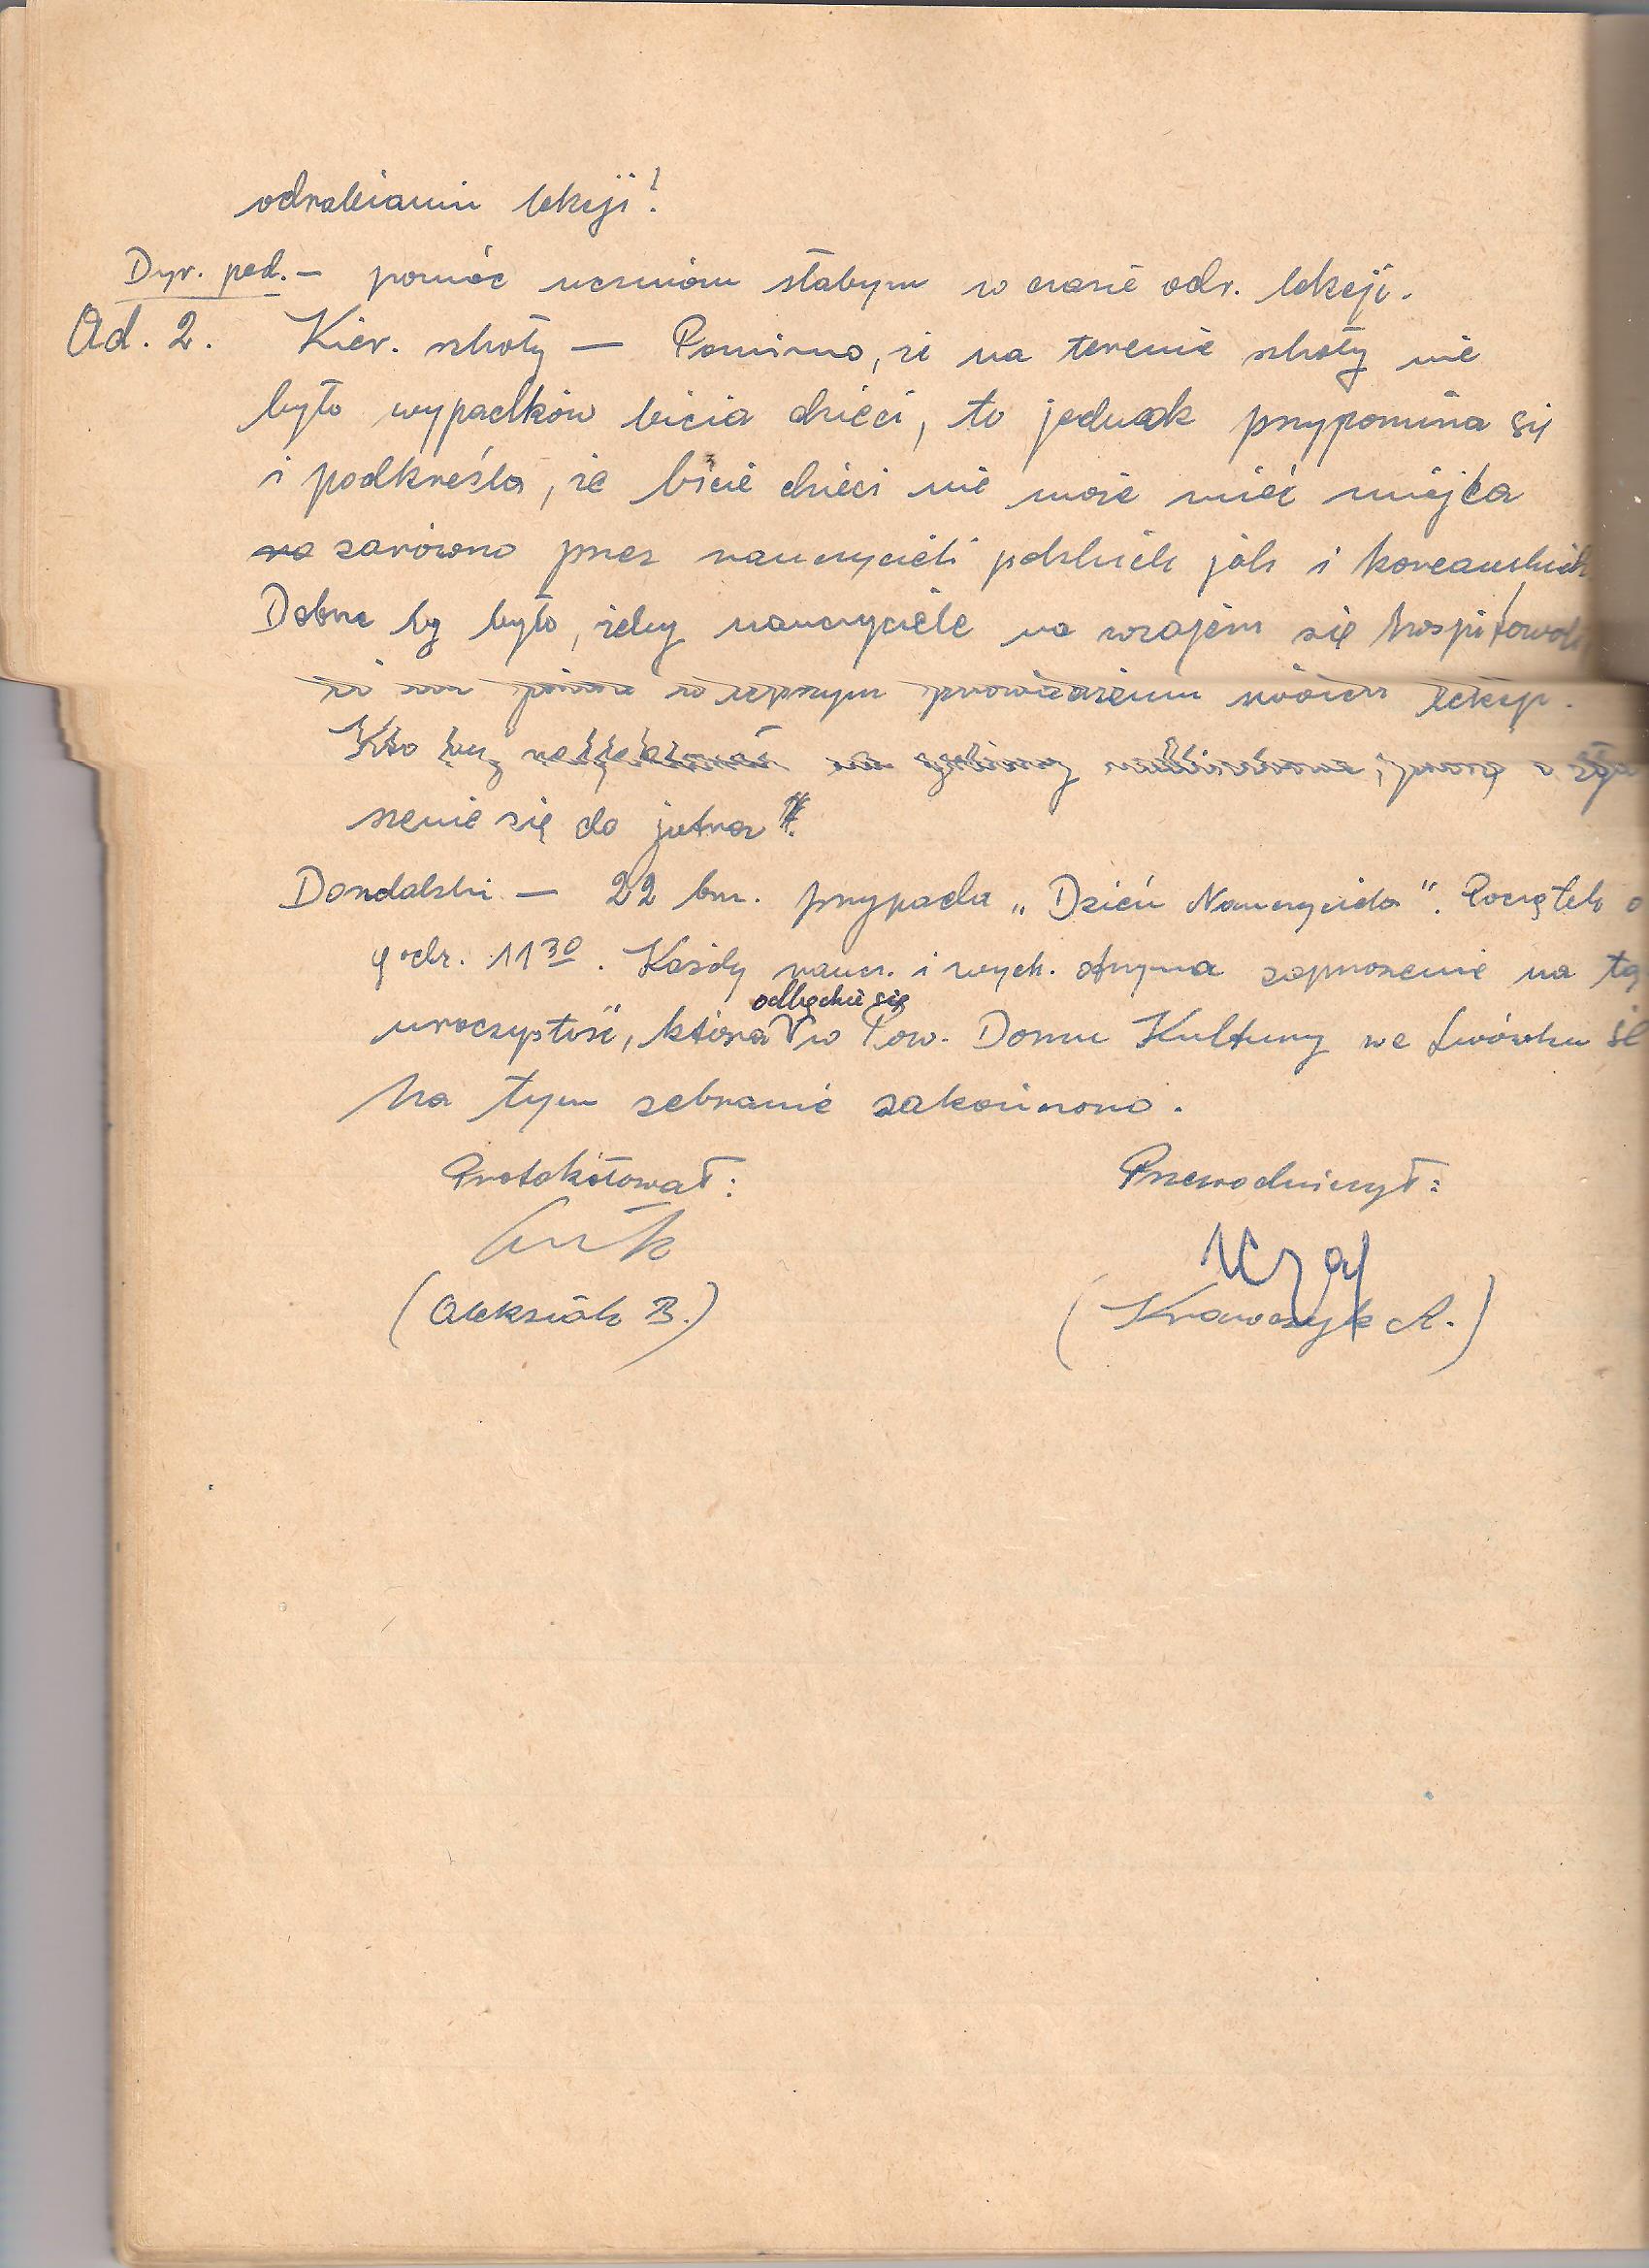 odrabianiu lekcji?
Dyr. ped. — pomóc uczniom słabym w czasie odr. lekcji.
Ad. 2. Kier. szkoły — Pomimo, że na terenie szkoły nie
było wypadków bicia dzieci, to jednak przypomina się
i podkreśla, że bicie dzieci nie może mieć miejsca
na zarówno przez nauczycieli polskich jak i koreańskich
Dobrze by było, żeby nauczyciele na wzajem się hospitowali
w prowadzeniu lekcji.
Kto
szenie się do jutra
Dondalski — 22 bm. przypada „Dzień Nauczyciela". Początek o
godz. 11 30. Każdy naucz. i wych. otrzyma zaproszenie na tą
uroczystość, która odbędzie się w Pow. Domu Kultury we Lwówku Śl
Na tym zebranie zakończono.
Protokołował: Przewodniczył:
(Aleksiak B.) (Krawczyk R.)